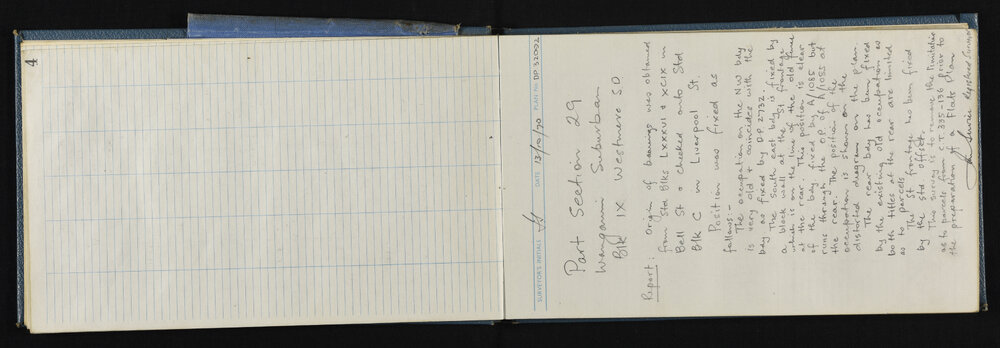 4
SURVEYOR'S INITIALS DATE 13/10/70 PLAN No. DP 32002
Part Section 29
Wanganui Suburban
Blk IX Westmere S.D
Report: Origin of bearings was obtained
from Std Blks LXXXVI & XCIX in
Bell St & checked onto Std
Blk C in Liverpool St.
Position was fixed as
follows:-
The occupation on the NW bdy
is very old & coincides with the
bdy as fixed by DP 2732.
The South east bdy fixed by
a block wall at the St frontage
which is on the line of the old fence
at the rear. This position is clear
of the bdy fixed by A/1085 but
runs through the O.P. of A/1085 at
the rear. The position of the
occupation is shown on the
distorted diagram on the plan.
The rear bdy has been fixed
by the existing old occupation as
both titles at the rear are limited
as to parcels.
The St frontage has been fixed
by the std offset.
This survey is to remove the limitation
as to parcels from CT 335-136 prior to
the preparation of a Flats Plan
Registered Surveyor